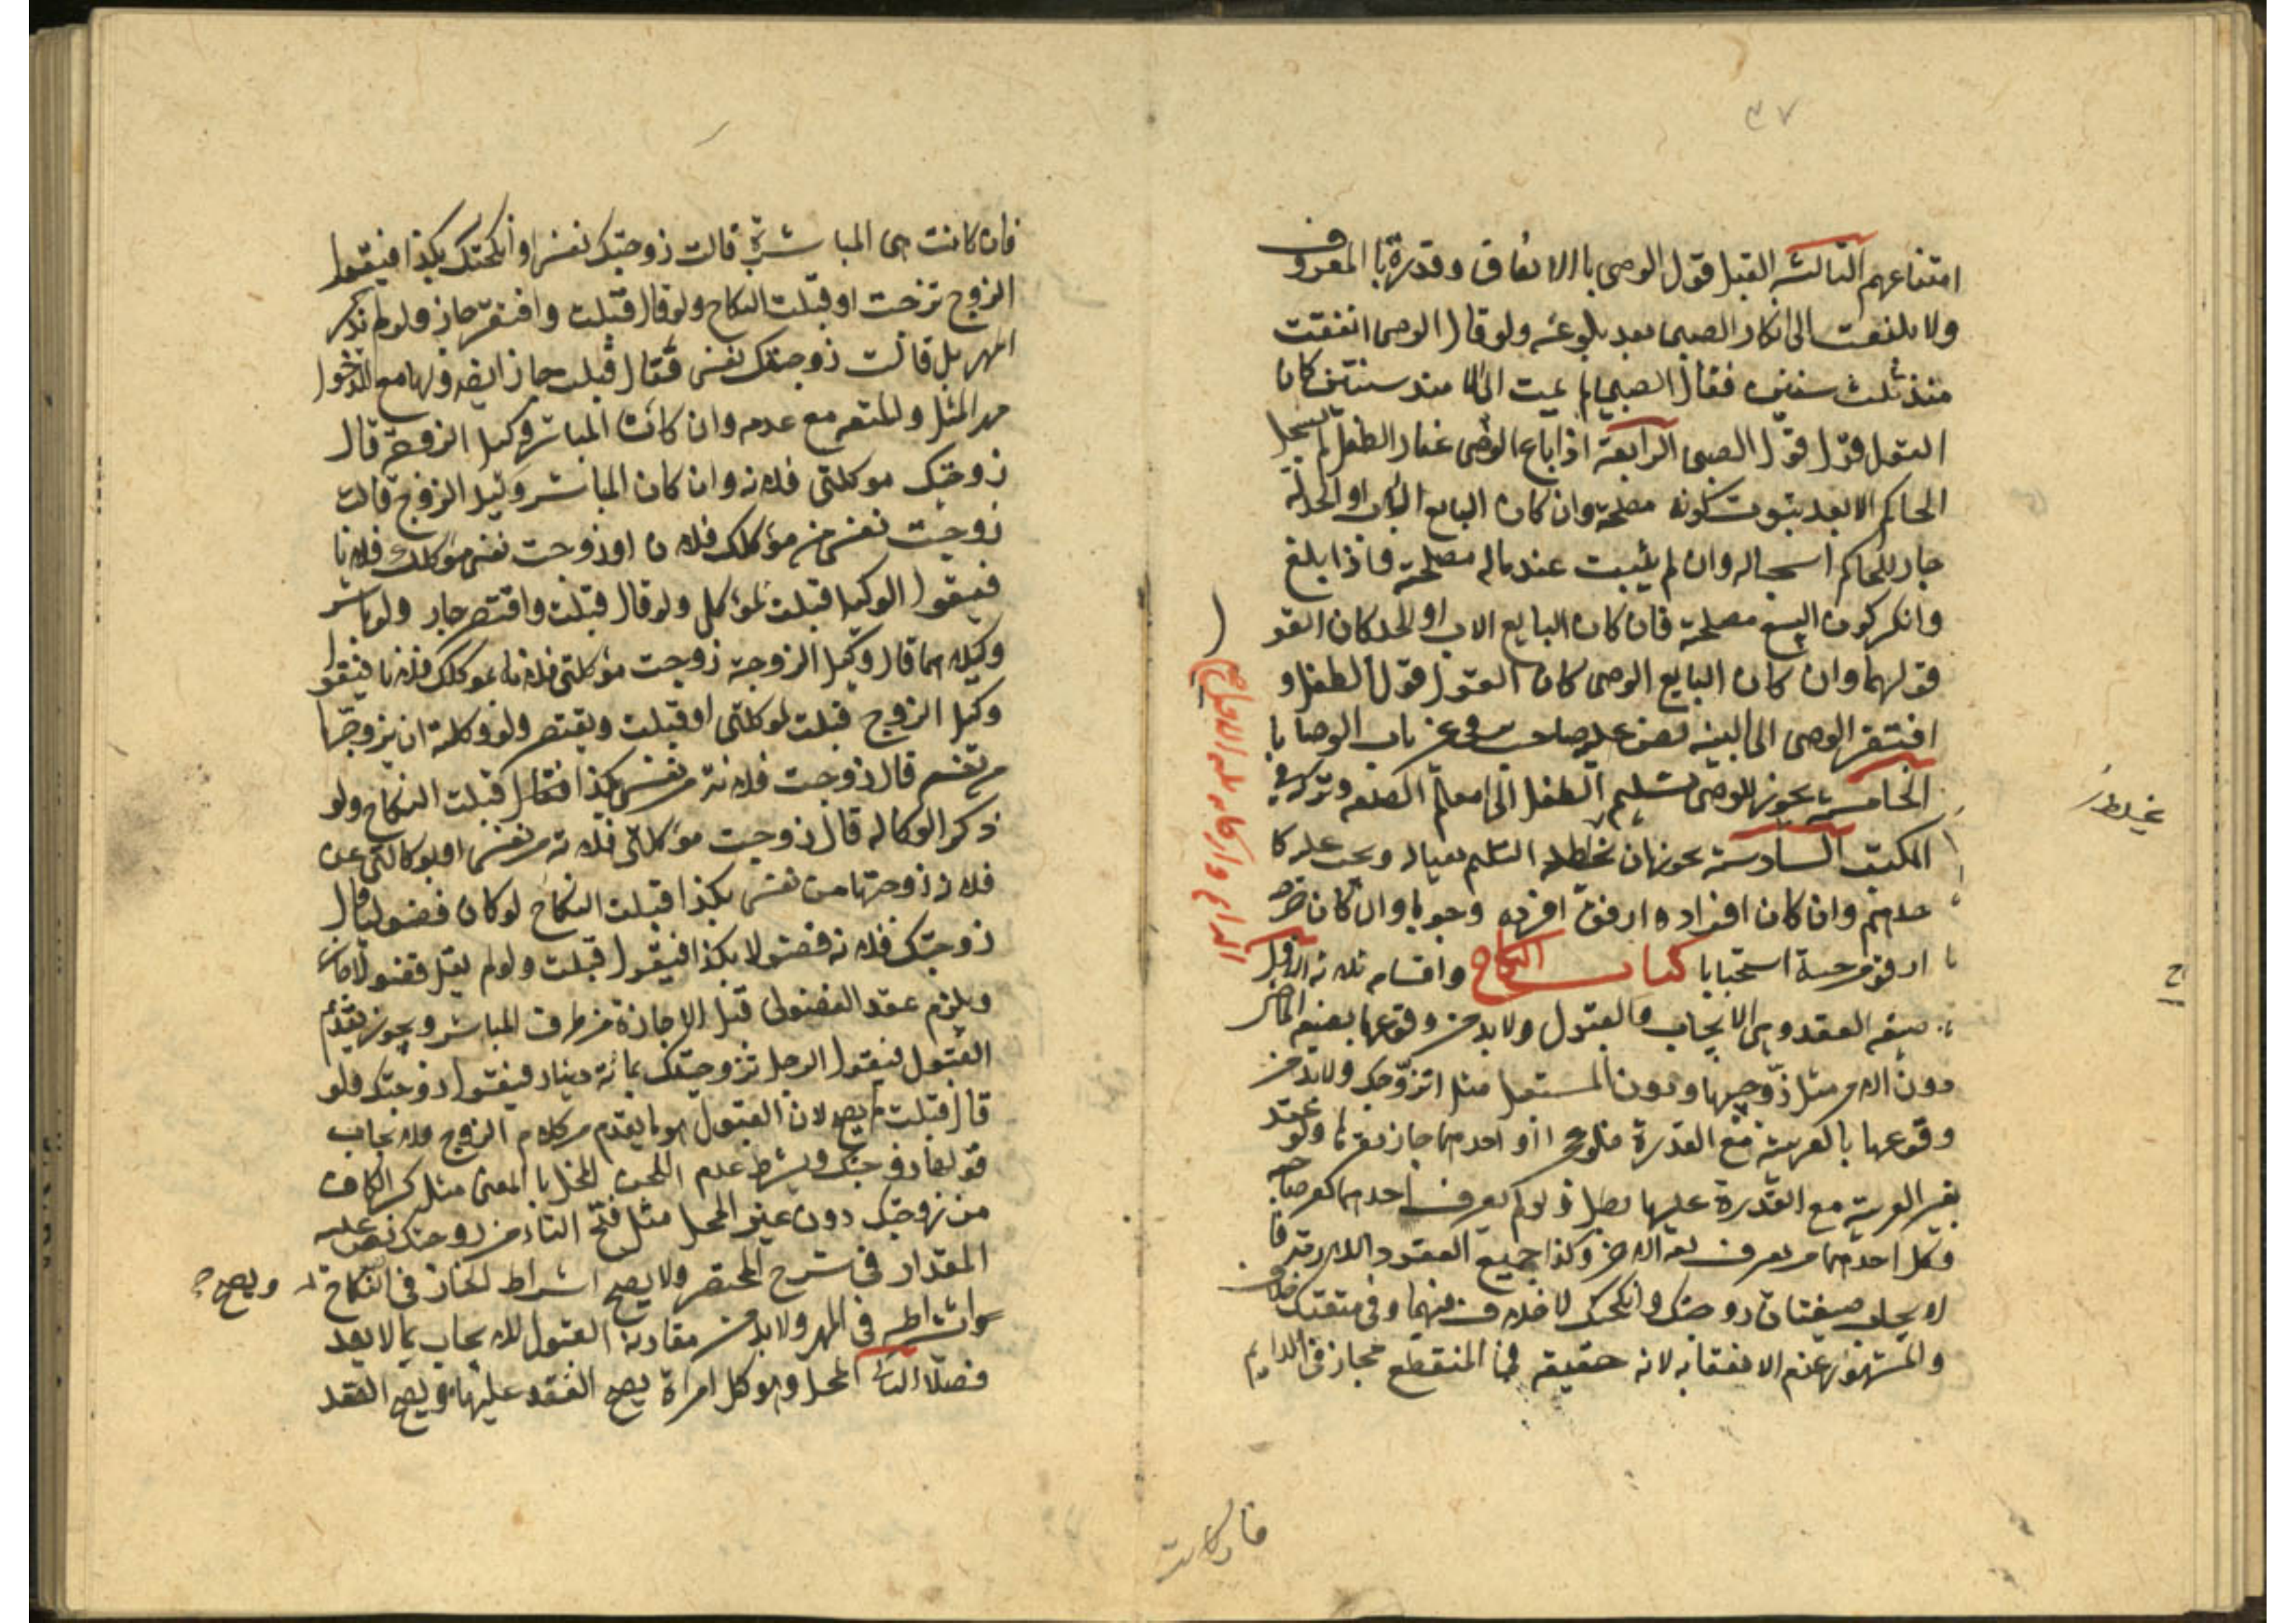 ٣٧
امتناعهم الثالثه القبل قول الوصى با الانفاق وقدره با المعروف
ولا يلتفت الى انكار الصبى بعد بلوغه ولو قال الوصى انفقت
منذ ثلث سنين فقال الصبى ما الا منذ سنتين كان
القول قول الصبى الرابعة اذا باع الوصى عقار الطفل لم يسجل
الحاكم الا بعد ثبوت كونه مصلحة وان كان البايع الاب او الجد له
جاز للحاكم اسجاله وان لم يثبت عنده انه مصلحة فاذا بلغ
وانكر كون البيع مصلحة فان كان البايع الاب او الجد كان القو
قولهما وان كان البايع الوصى كان القول قول الطفل و
افتقر الوصى الى البينه نص عليه صاحب فى باب الوصايا
الخامسة يجوز للوصى تسليم الطفل الى معلم الصنعه و
المكتب السادسة يجوز ان يخلط اليتيم بعياله ويجب عليه كا
حدهم وان كان افراده ارفق افرده وجوبا وان كان
ارفق استحبابا كتاب النكاح واقسامه ثلاثه الاول
صيغه العقد وهى الايجاب والقبول ولا بد من وقوعها بصيغه الماضى
دون الامر مثل زوجنيها ودون المستقبل مثل اتزوجك ولا بد من
وقوعها بالعربية مع القدرة فلو عجزا او احدهما جاز ولو عقد
بغير العربية مع القدرة عليها بطل ولو لم يعرف احدهما
وكل احدهما من يعرف لغه الاخر وكذا جميع العقود اللازمة
لايجاب صيغتان زوجتك وانكحتك لا خلاف فيهما وفى متعتك خلاف
والمشهور عدم الانعقاد به لانه حقيقه فى المنقطع مجاز فى الدايم
فان كانت
فان كانت هى المباشرة قالت زوجتك نفسى او انكحتك بكذا فيقول
الزوج تزوجت او قبلت النكاح ولو قال قبلت واقتصر جاز ولو لم تذكر
المهر بل قالت زوجتك نفسى فقال قبلت جاز ايضا ولها مع الدخول
مهر المثل والمتعه مع عدمه وان كان المباشر وكيل الزوجة قال
زوجتك موكلتى فلانه وان كان المباشر وكيل الزوج قالت
زوجت نفسى من موكلك فلان او زوجت نفسى موكلك فلانا
فيقول الوكيل قبلت لموكلى ولو قال قبلت واقتصر جاز ولو باشر
وكيلاهما قال وكيل الزوجة زوجت موكلتى فلانه بموكلك فلانا فيقول
وكيل الزوج قبلت لموكلى او قبلت ويقتصر ولو وكلته ان يزوجها
من نفسه قال زوجت فلانة من نفسى بكذا فقال قبلت النكاح ولو
ذكر الوكاله قال زوجت موكلتى فلانه من نفسى او بوكالتى عن
فلانه زوجتها من نفسى بكذا قبلت النكاح لو كان فضوليا قال
زوجتك فلانه فضولا بكذا فيقول قبلت ولو لم يقل فضولا جاز
ويلزم عقد الفضولى قبل الاجازة من طرف المباشر ويجوز تقديم
القبول فيقول الرجل تزوجتك بمائة دينار فيقول زوجتك فلو
قال قبلت لم يصح لان القبول هو ما يقدم من كلام الزوج والايجاب
قولها زوجتك ويشترط عدم اللحن المخل با المعنى مثل كسر الكاف
من زوجتك دون غير المخل مثل فتح التاء من زوجتك نص عليه
المقداد فى شرح المختصر ولا يصح اشتراط الخيار فى النكاح ويصح
اشتراطه فى المهر ولا بد من مقارنة القبول للايجاب بما لا يعد
فصلا الثانى المحل وهو كل امراة يصح العقد عليها ويصح العقد